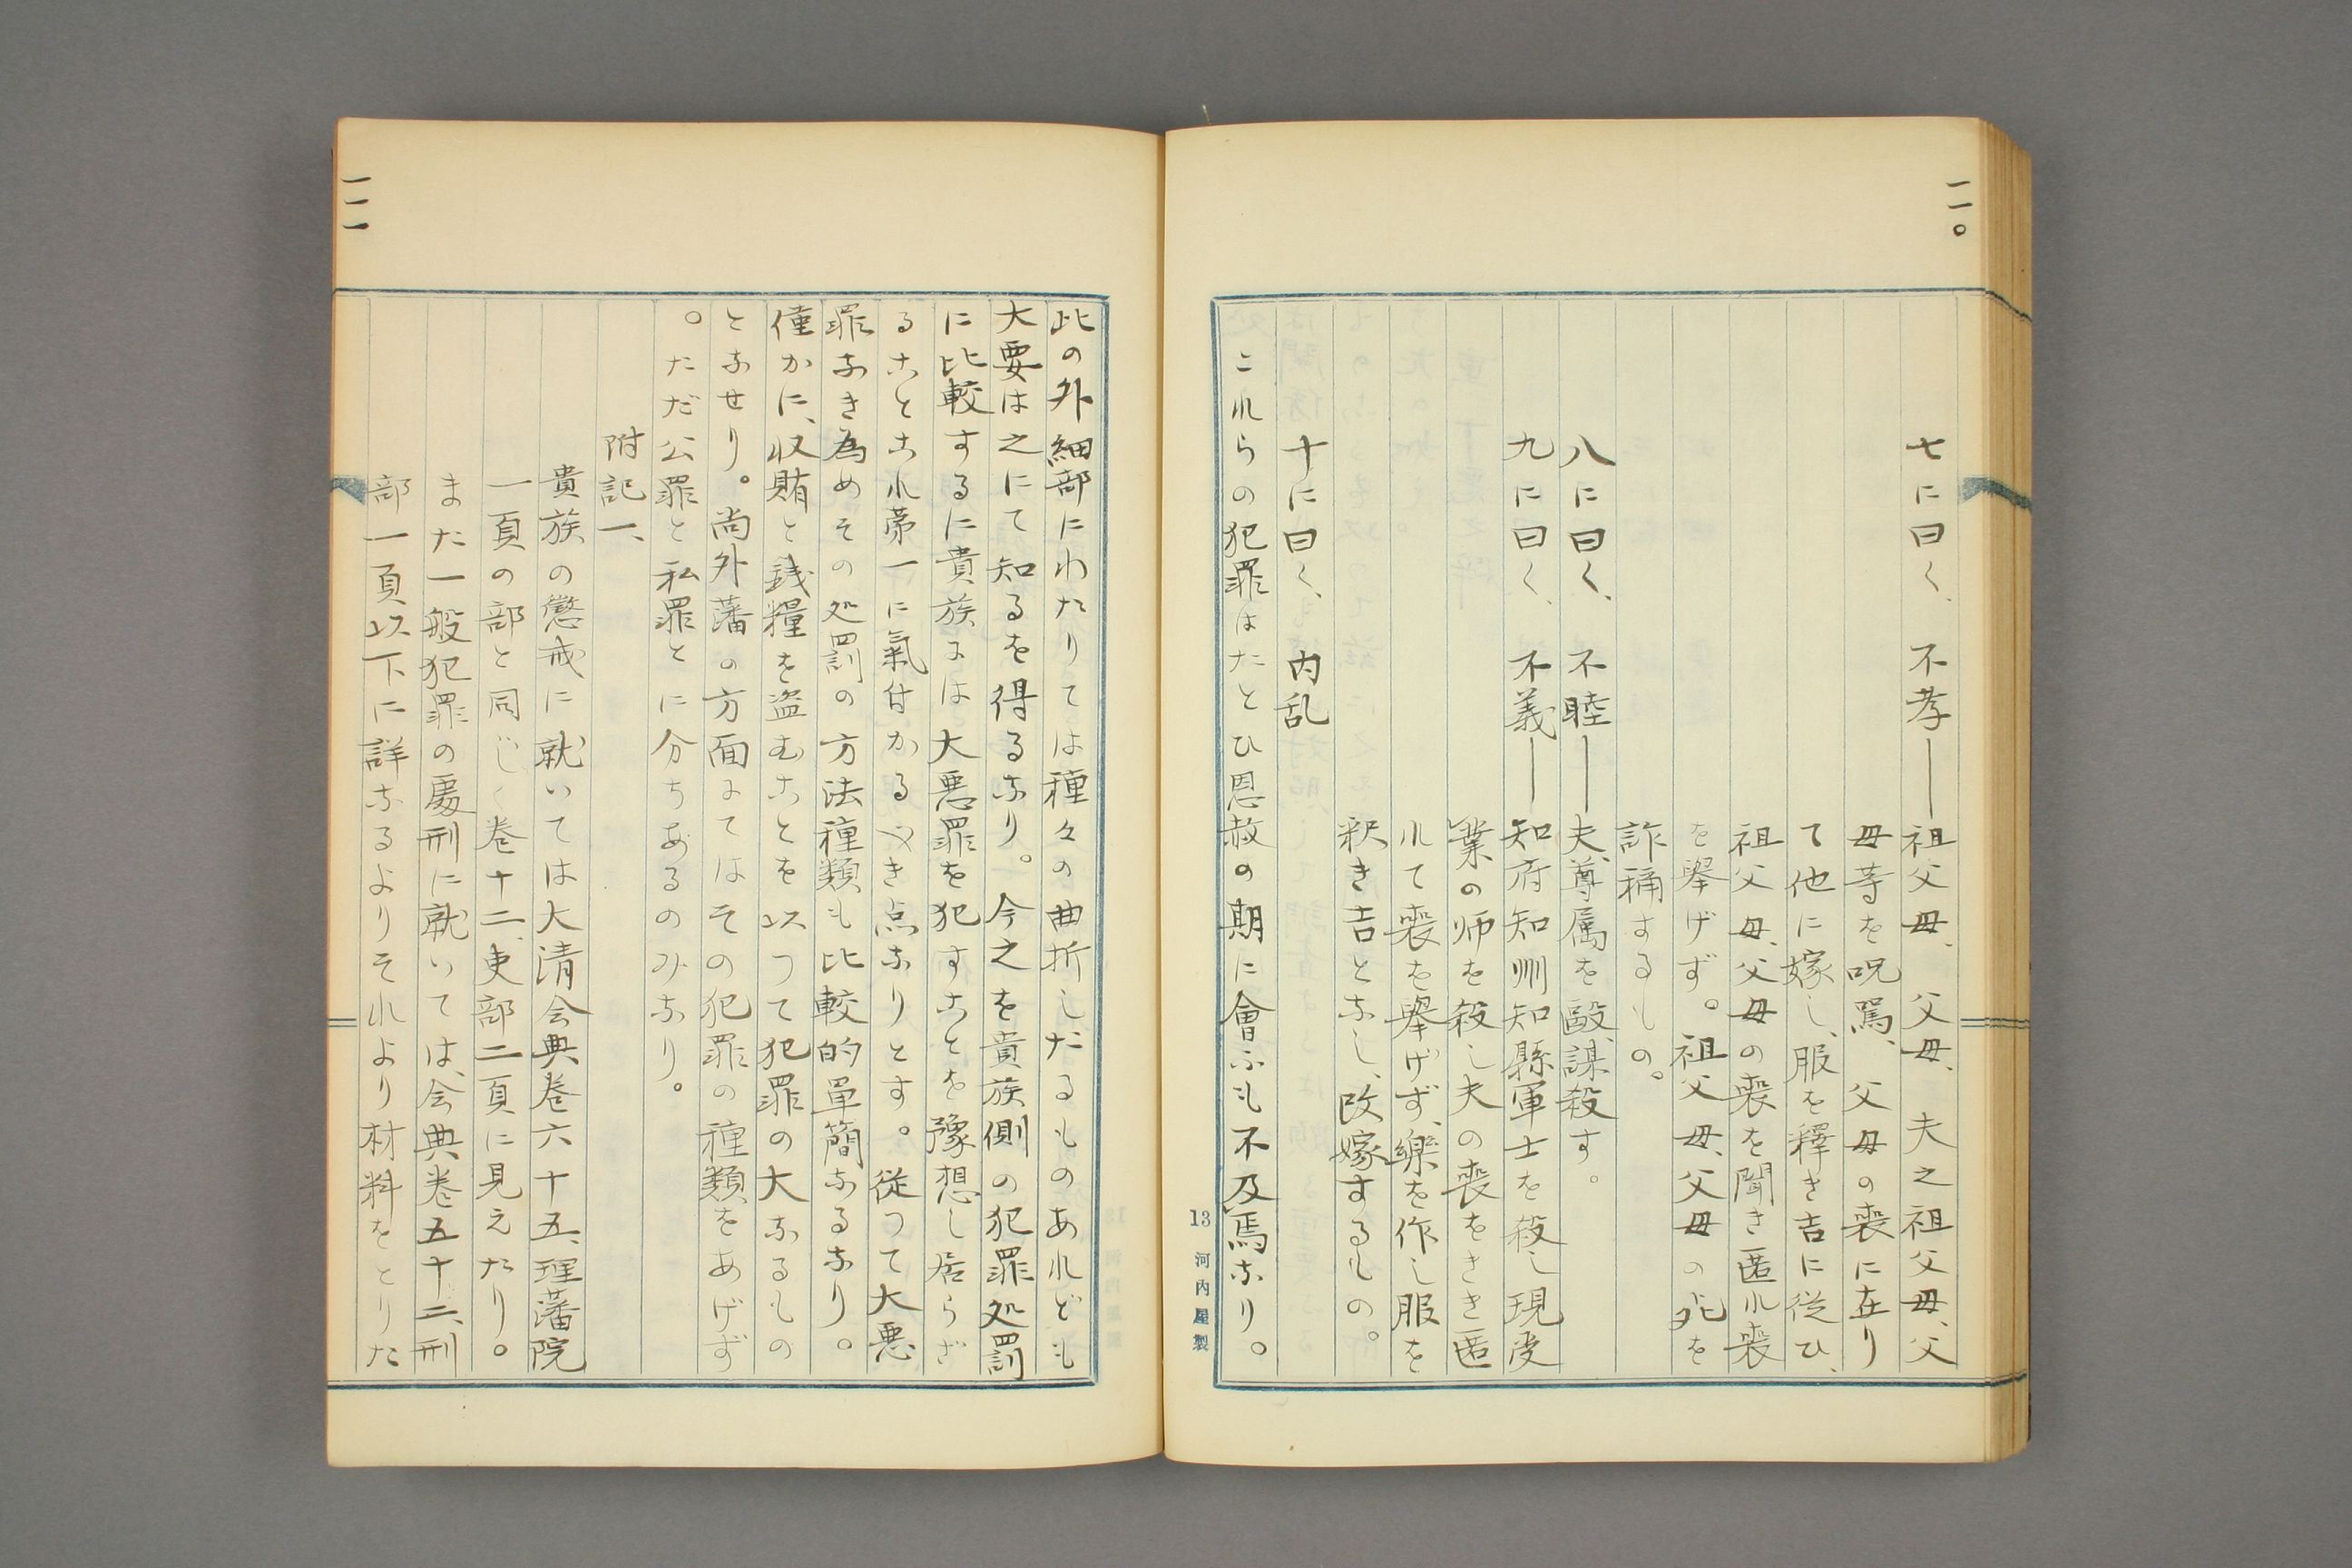 二一〇
七に曰く、不孝――祖父母、父母、夫之祖父母、父
母等を呪罵、父母の喪に在り
て他に嫁し、服を釋き吉に従ひ、
祖父母、父母の喪を聞き匿れ喪
を擧げず。祖父母、父母の死を
詐称するもの。
八に曰く、不睦――夫、尊属を毆、謀殺す。
九に曰く、不義――知府知州知縣軍士を殺し現受
業の師を殺し夫の喪をきき匿
れて喪を擧げず、樂を作し服を
釈き吉となし、改嫁するもの。
十に曰く、内乱
これらの犯罪はたとひ恩赦の期に會ふも不及焉なり。
13 河内屋製
二一一
此の外細部にわたりては種々の曲折したるものあれども
大要は之にて知るを得るなり。今之を貴族側の犯罪処罰
に比較するに貴族には大悪罪を犯すことを豫想し居らざ
ることこれ第一に氣付かるべき点なりとす。従つて大悪
罪なき為めその処罰の方法種類も比較的單簡なるなり。
僅かに、収賄と銭糧を盗むことを以つて犯罪の大なるもの
となせり。尚外藩の方面にてはその犯罪の種類をあげず
。ただ公罪と私罪とに分ちあるのみなり。
附記一、
貴族の懲戒に就いては大清会典巻六十五、理藩院
一頁の部と同じく巻十二、吏部二頁に見えたり。
また一般犯罪の處刑に就いては、会典巻五十二、刑
部一頁以下に詳なるよりそれより材料をとりた